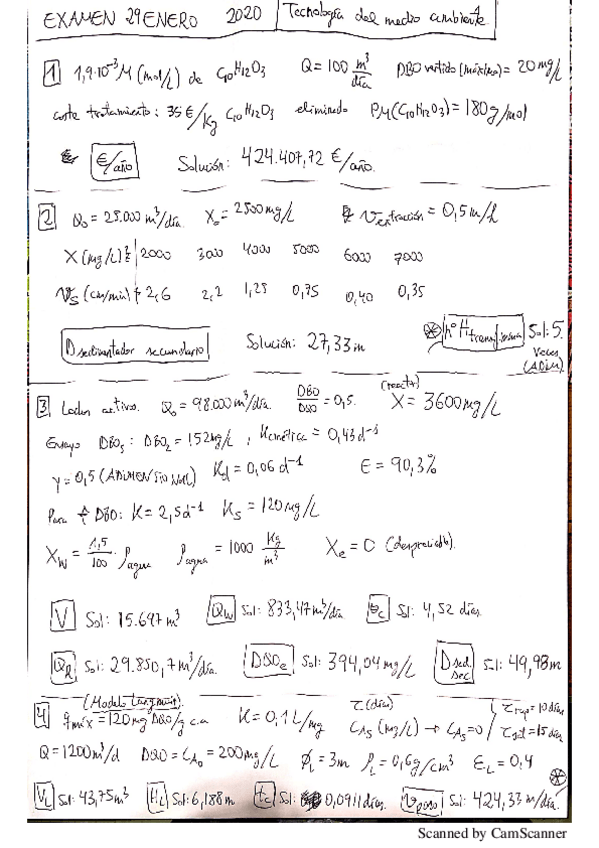 EXAMEN 29 ENERO 2020 Tecnología del medio ambiente
1 1,9·10⁻³ M (mol/L) de C₁₀H₁₂O₃ Q = 100 m³/día DBO vertido (máximo) = 20 mg/L
coste tratamiento: 35 €/Kg C₁₀H₁₂O₃ eliminado PM(C₁₀H₁₂O₃) = 180 g/mol
€/año Solución: 424.407,72 €/año.
2 Q₀ = 25.000 m³/día X₀ = 2500 mg/L V extracción = 0,5 m/h
X (mg/L) 2000 3000 4000 5000 6000 7000
Vs (cm/min) 2,6 2,2 1,25 0,75 0,40 0,35
D sedimentador secundario Solución: 27,33 m nº H Sol: 5. Veces (ADIM)
3 Lodos activos. Q₀ = 98.000 m³/día. DBO/DQO = 0,5. (reactor) X = 3600 mg/L
Ensayo DBO₅: DBO₂ = 152 mg/L, K cinética = 0,43 d⁻¹
Y = 0,5 (ADIMENSIONAL) Kd = 0,06 d⁻¹ E = 90,3%
Para DBO: K = 2,5 d⁻¹ Ks = 120 mg/L
Xw = 1,5/100 · ρagua ρagua = 1000 Kg/m³ Xe = 0 (despreciable).
V Sol: 15.697 m³ Qw Sol: 833,47 m³/día θc Sol: 4,52 días.
QR Sol: 29.850,7 m³/día. DQOe Sol: 394,04 mg/L D sed. sec. Sol: 49,98 m
4 (Modelo Langmuir). qmáx = 120 mg DQO/g c.a K = 0,1 L/mg τ (días) CAs (mg/L) → CAs = 0 τrup = 10 días τsat = 15 días
Q = 1200 m³/d DQO = CA₀ = 200 mg/L ϕL = 3m ρL = 0,6 g/cm³ εL = 0,4
VL Sol: 43,75 m³ HL Sol: 6,188 m tc Sol: 0,0911 días. Sol: 424,33 m/día.
Scanned by CamScanner